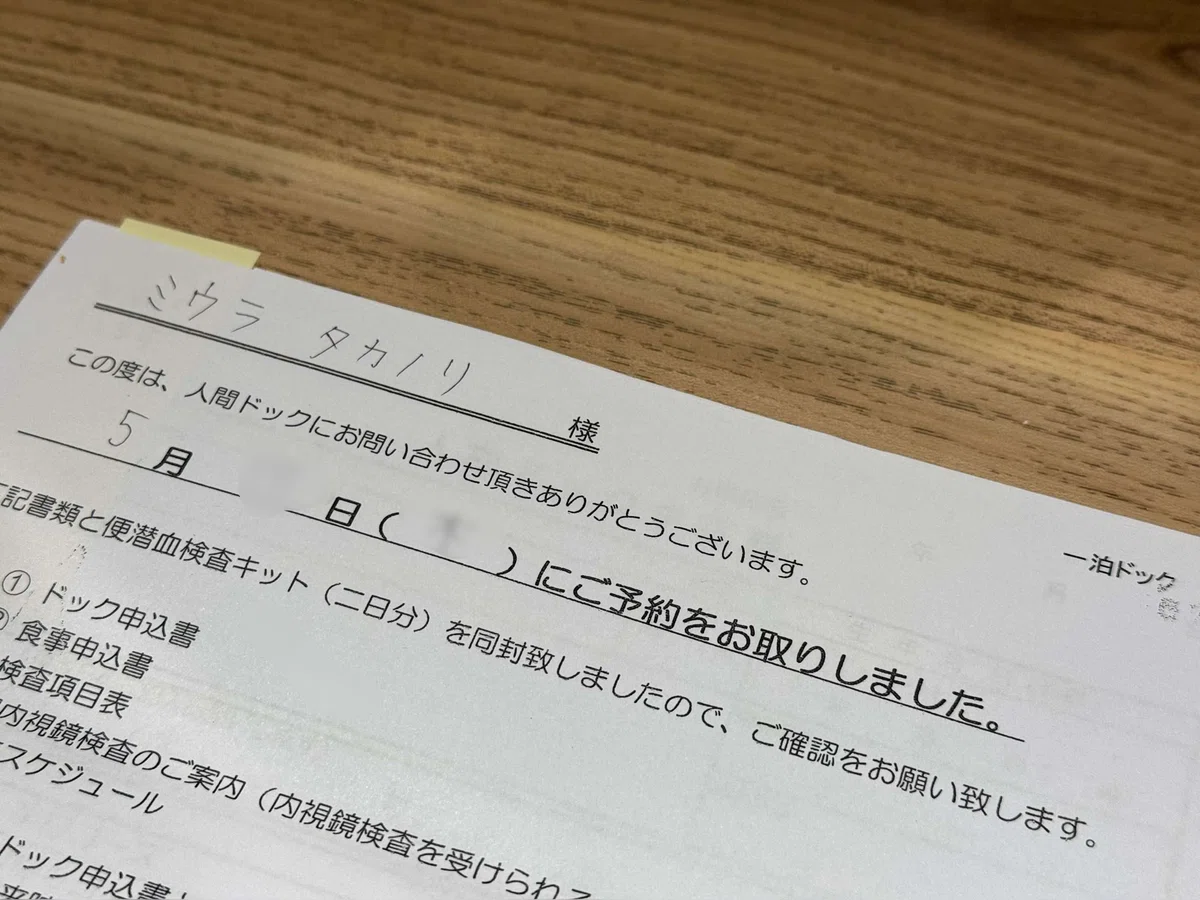 ミウラ タカノリ 様
この度は、人間ドックにお問い合わせ頂きありがとうございます。
一泊ドック
5月 日( )にご予約をお取りしました。
記書類と便潜血検査キット(二日分)を同封致しましたので、ご確認をお願い致します。
① ドック申込書
② 食事申込書
検査項目表
内視鏡検査のご案内(内視鏡検査を受けられる
スケジュール
ドック申込書